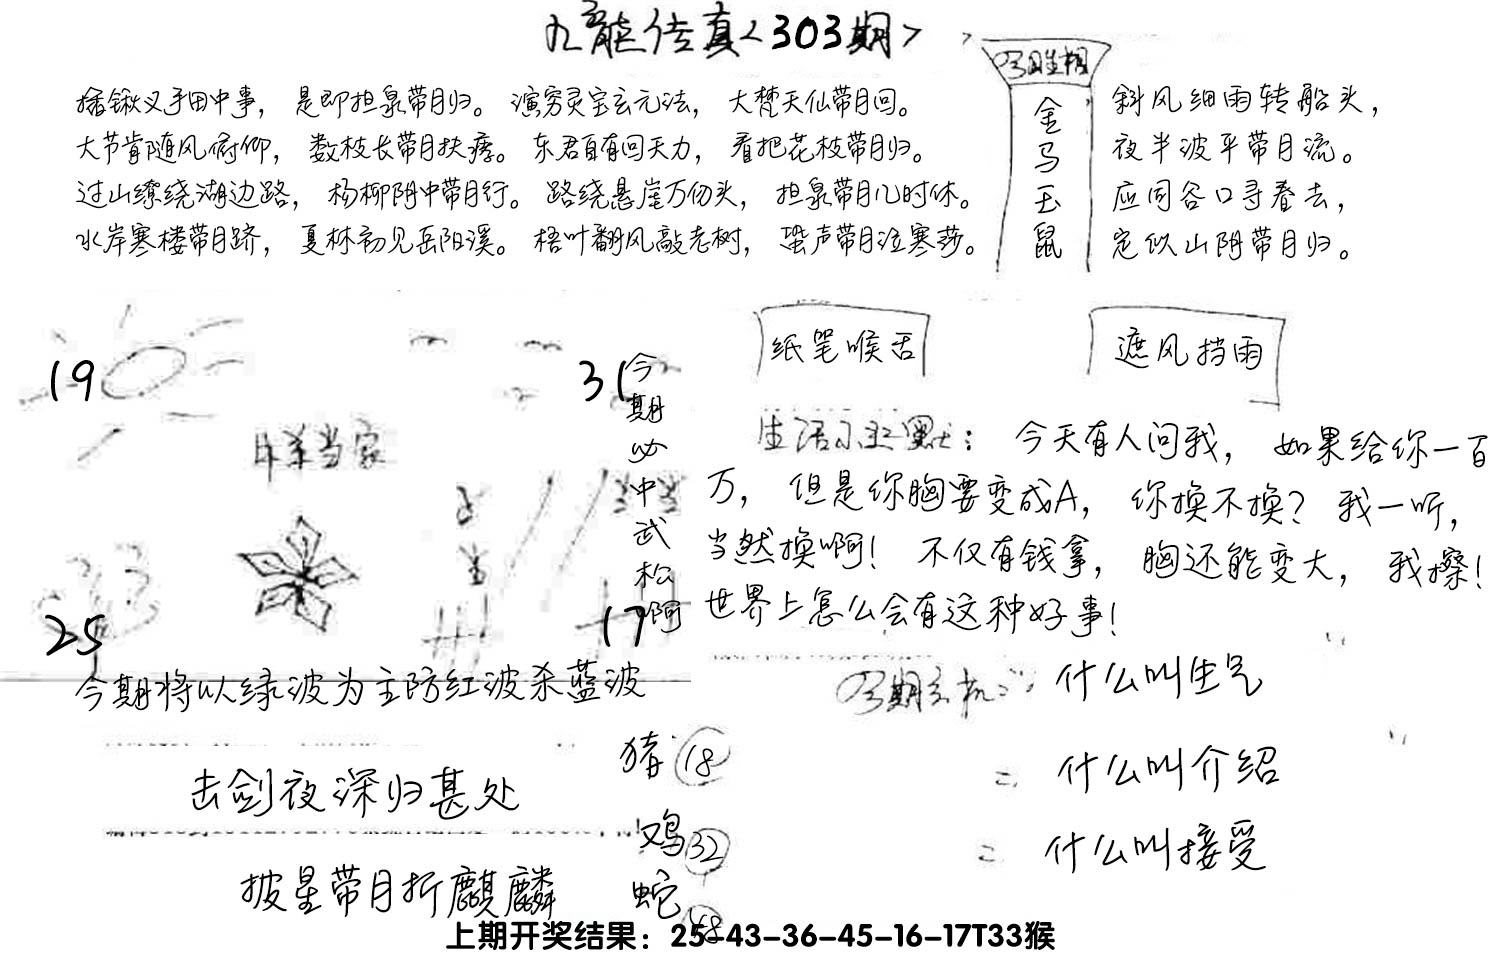 九龙传真<303期>
今期生相
金马玉鼠
插锹叉手田中事，是即担泉带月归。演穷灵宝玄元法，大梵天仙带月回。
大节肯随风俯仰，数枝长带月扶疏。东君自有回天力，看把花枝带月归。
过山缭绕湖边路，杨柳阴中带月行。路绕悬崖万仞头，担泉带月几时休。
水岸寒楼带月跻，夏林初见岳阳溪。梧叶翻风敲老树，蛩声带月泣寒莎。
斜风细雨转船头，
夜半波平带月流。
应同谷口寻春去，
定似山阴带月归。
19
31
25
17
今期必中武松啊
今期将以绿波为主防红波杀蓝波
纸笔喉舌
遮风挡雨
生活幽默：今天有人问我，如果给你一百
万，但是你胸要变成A，你换不换？我一听，
当然换啊！不仅有钱拿，胸还能变大，我擦！
世界上怎么会有这种好事！
今期玄机：什么叫生气
什么叫介绍
什么叫接受
击剑夜深归甚处
披星带月折麒麟
猪 18
鸡 32
蛇 48
上期开奖结果：25-43-36-45-16-17T33猴